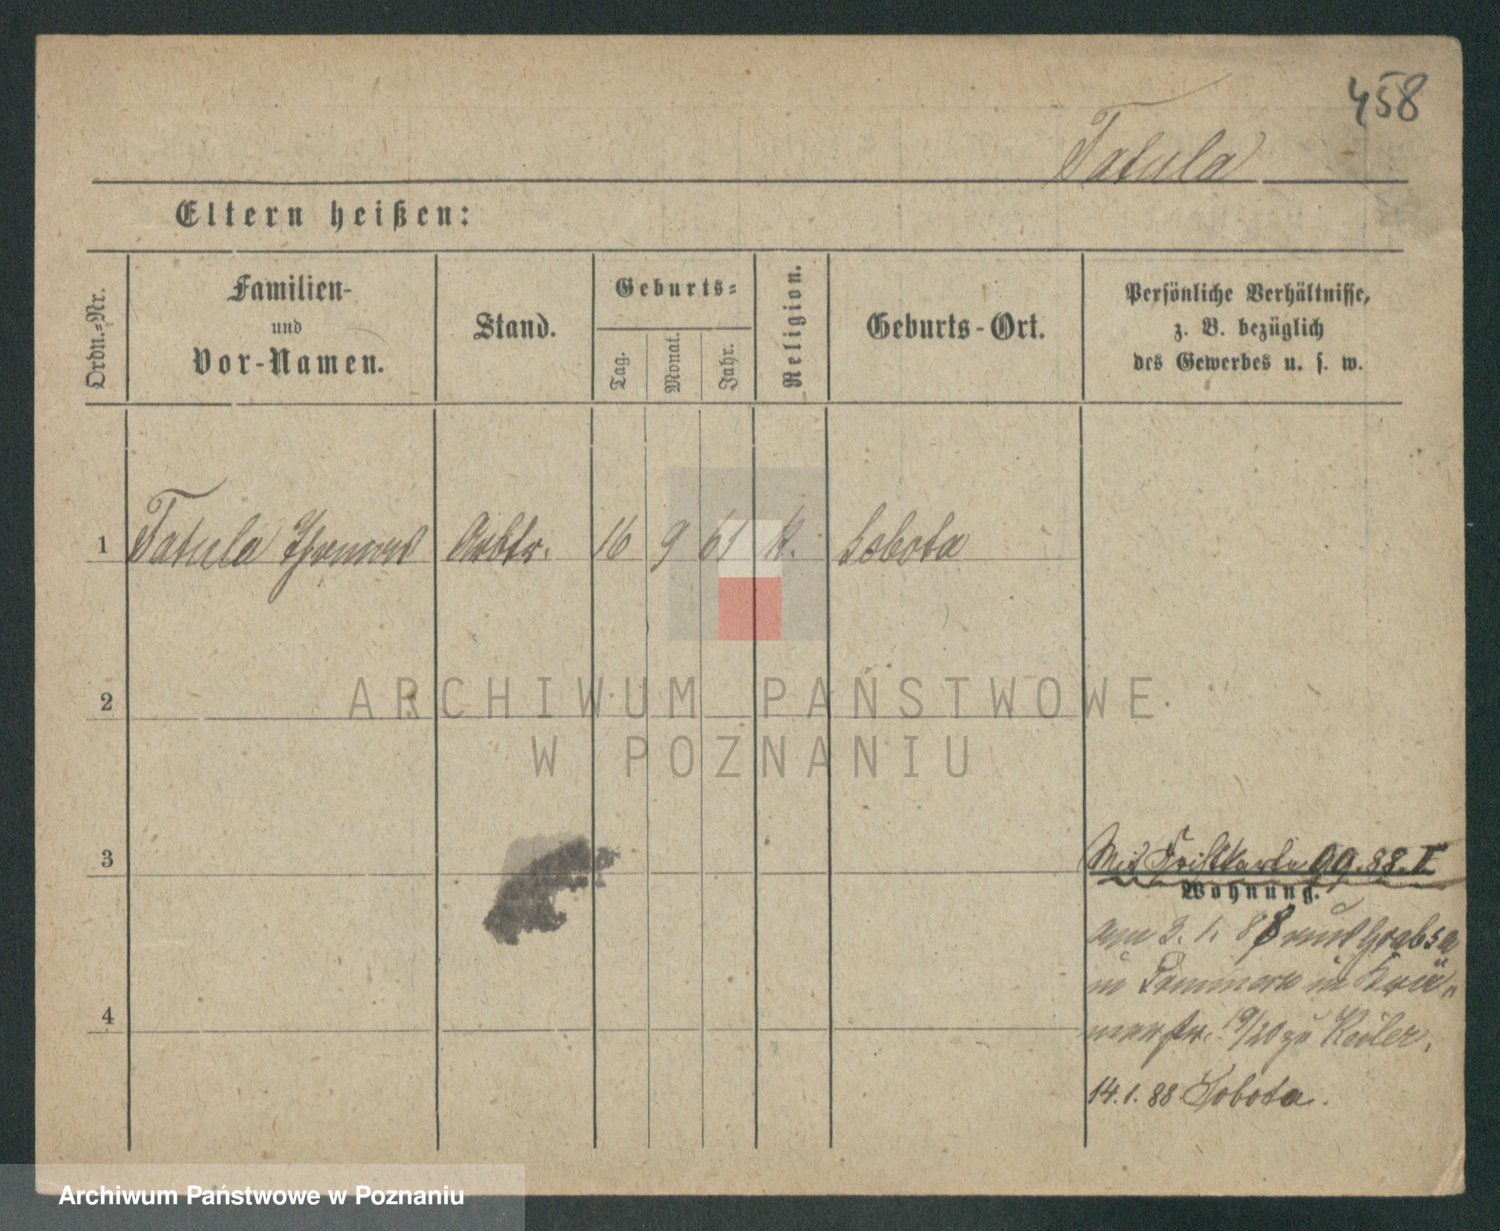 458
Tatula
Eltern heißen:
Ordn.=Nr.
Familien-
und
Vor-Namen.
Stand.
Geburts=
Tag.
Monat.
Jahr.
Religion.
Geburts-Ort.
Persönliche Verhältnisse,
z. B. bezüglich
des Gewerbes u. s. w.
1 Tatula Thomas Arbtr. 16 9 61 k. Sobota
2
ARCHIWUM PAŃSTWOWE
W POZNANIU
3
Mit 99.88.I
Wohnung.
am 2.1.88
in in Krä=
merstr. 19/20 zu Keiler.
4
14.1.88 Sobota.
Archiwum Państwowe w Poznaniu